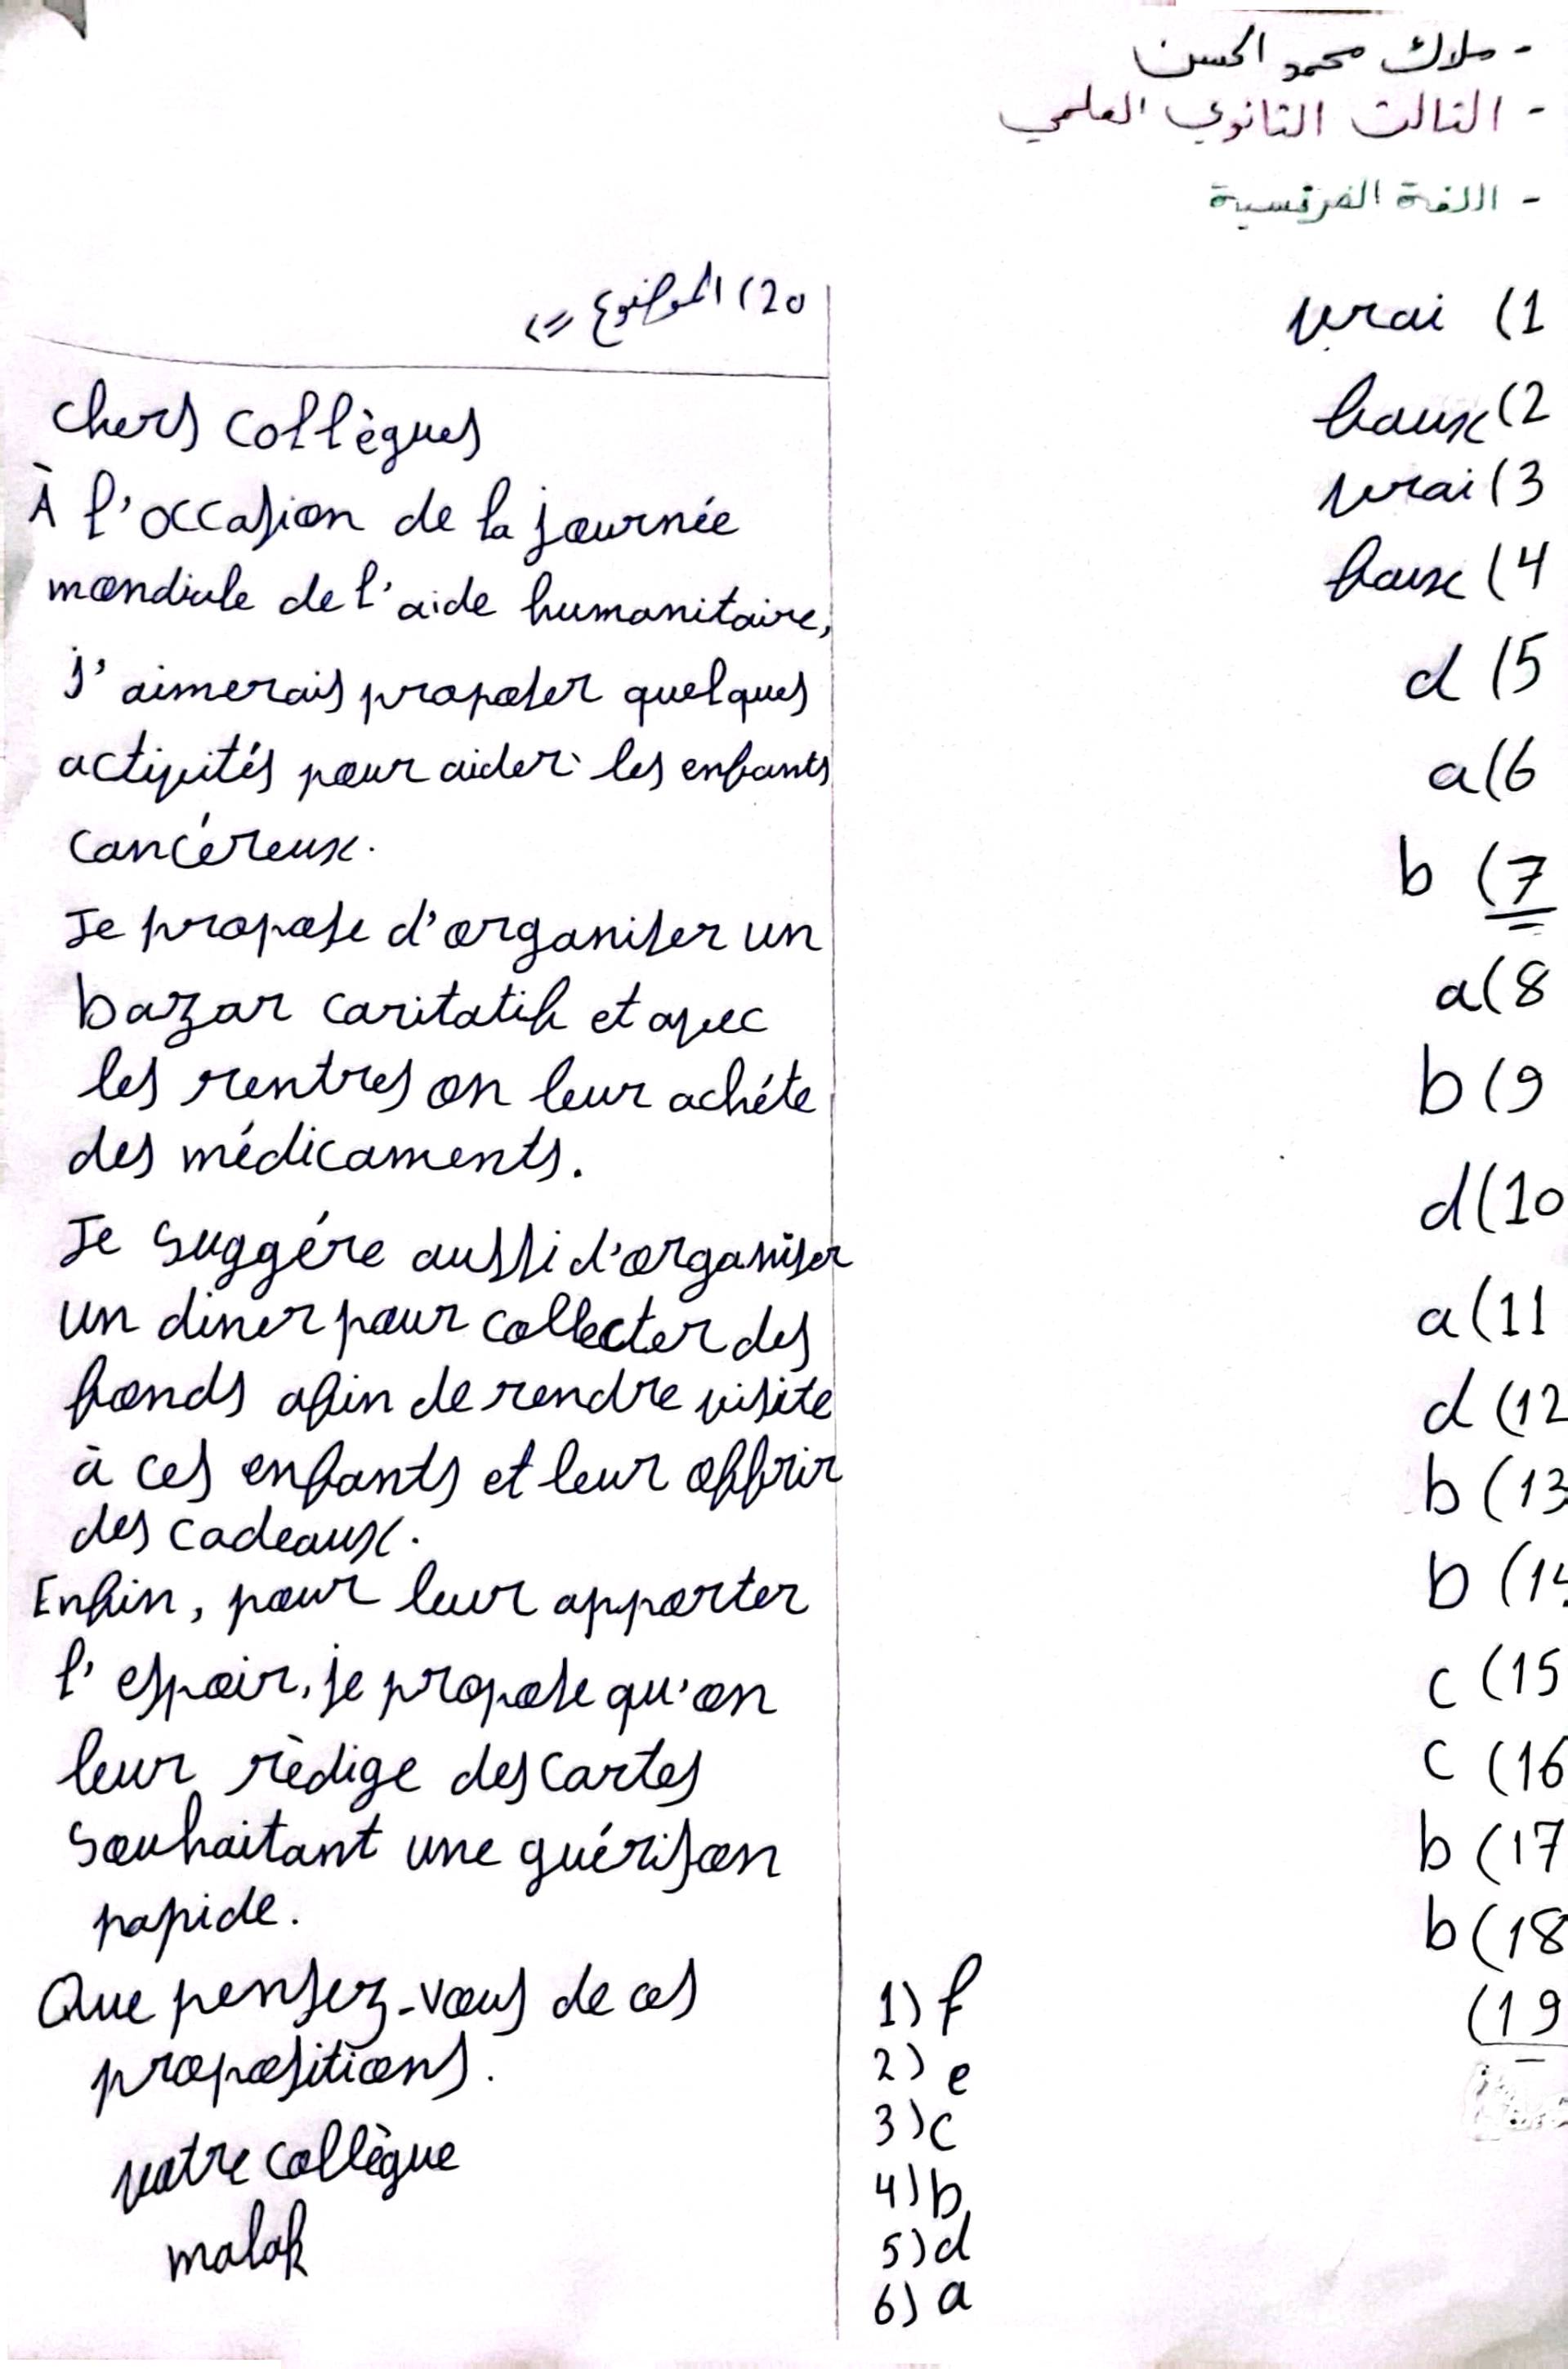 - ملاك محمد الحسن
- الثالث الثانوي العلمي
- اللغة الفرنسية
1) vrai
2) faux
3) vrai
4) faux
5) d
6) a
7) b
8) a
9) b
10) d
11) a
12) d
13) b
14) b
15) c
16) c
17) b
18) b
19)
1) f
2) e
3) c
4) b
5) d
6) a
20) الموضوع =>
Chers collègues
À l'occasion de la journée
mondiale de l'aide humanitaire,
j'aimerais proposer quelques
activités pour aider les enfants
cancéreux.
Je propose d'organiser un
bazar caritatif et avec
les rentres on leur achéte
des médicaments.
Je suggére aussi d'organiser
un diner pour collecter des
fonds afin de rendre visite
à ces enfants et leur offrir
des cadeaux.
Enfin, pour leur apporter
l'espoir, je propose qu'on
leur rèdige des cartes
souhaitant une guérison
rapide.
Que pensez-vous de ces
propositions.
votre collègue
malak